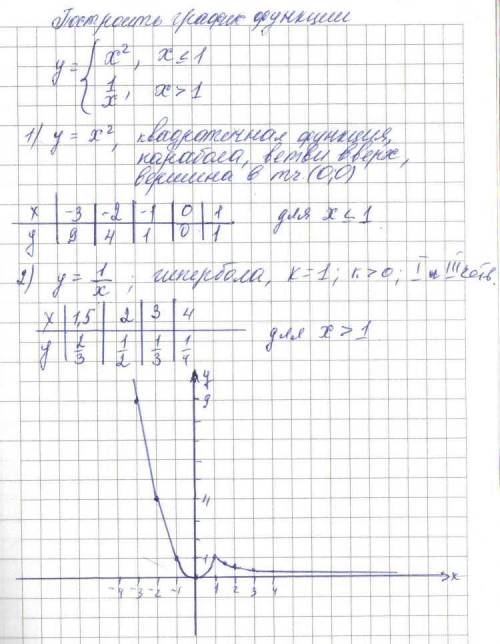 Построить график функции
y = { x², x ≤ 1
1/x, x > 1
1) y = x², квадратичная функция,
парабола, ветви вверх,
вершина в т. (0,0)
x | -3 | -2 | -1 | 0 | 1 для x ≤ 1
y | 9 | 4 | 1 | 0 | 1
2) y = 1/x ; гипербола, k=1; k>0; I и III четв.
x | 1,5 | 2 | 3 | 4
y | 2/3 | 1/2 | 1/3 | 1/4 для x > 1
y
9
4
1
-4 -3 -2 -1 1 2 3 4 x